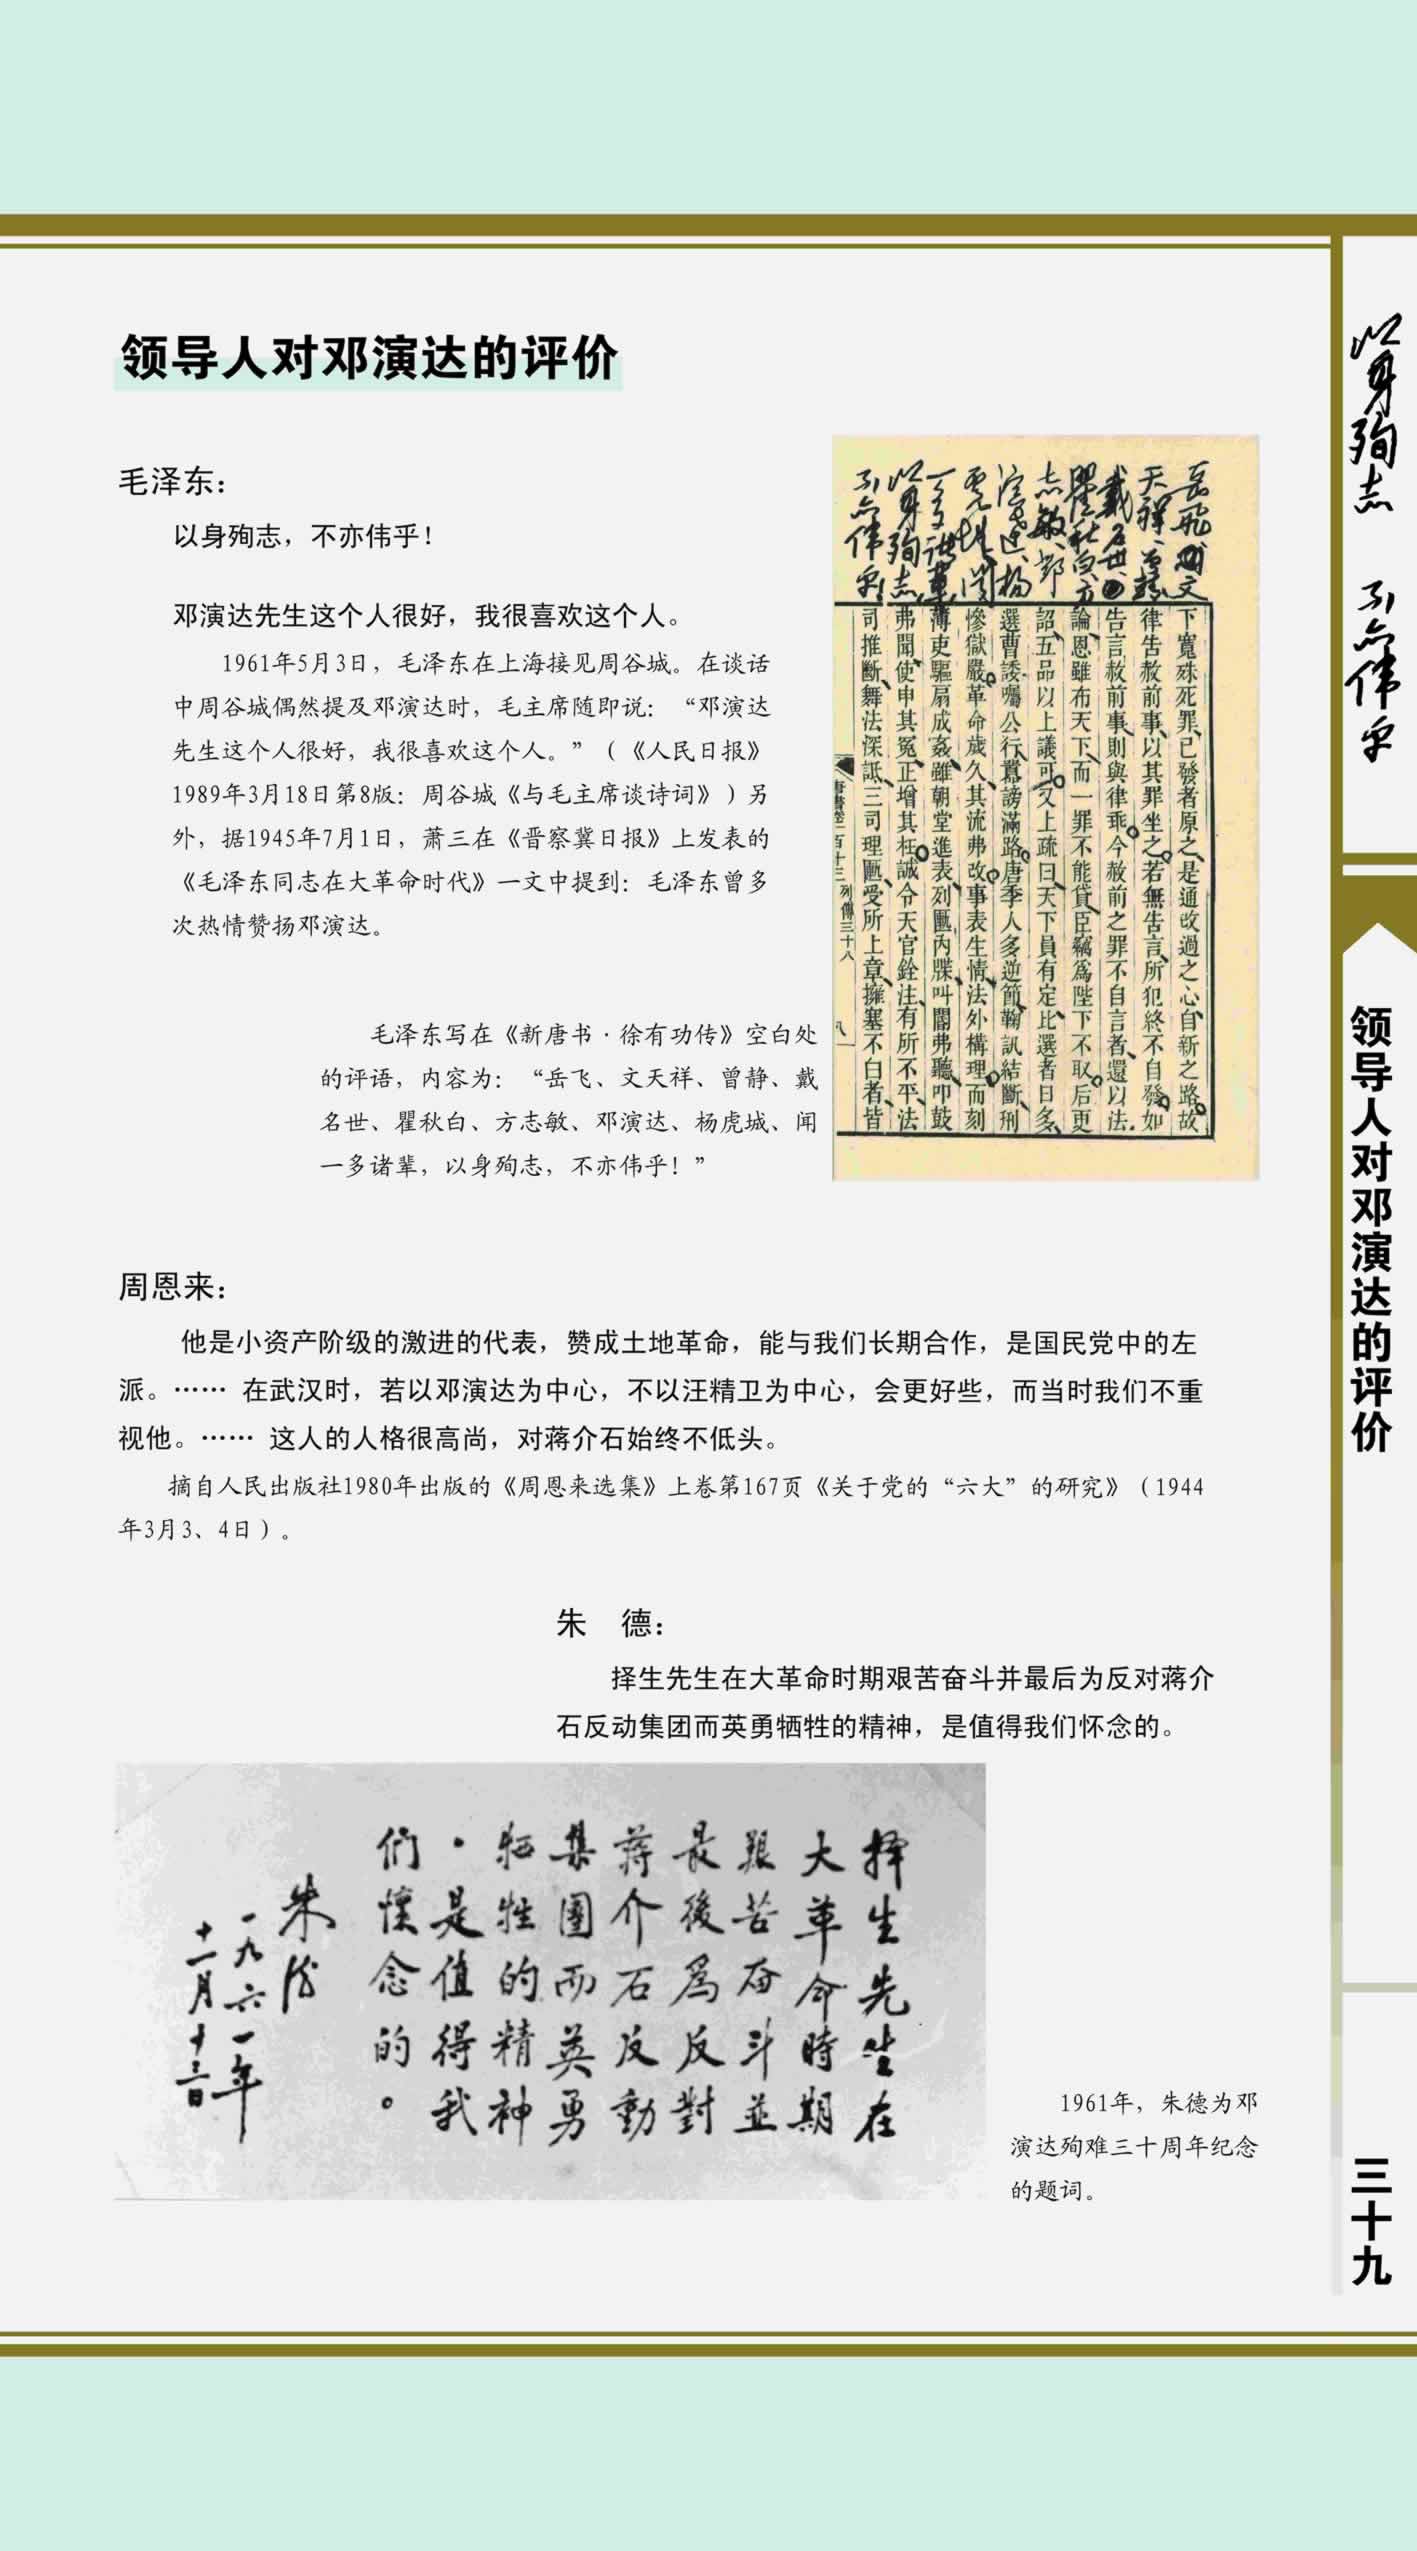 领导人对邓演达的评价
毛泽东：
以身殉志，不亦伟乎！
邓演达先生这个人很好，我很喜欢这个人。
1961年5月3日，毛泽东在上海接见周谷城。在谈话
中周谷城偶然提及邓演达时，毛主席随即说：“邓演达
先生这个人很好，我很喜欢这个人。”（《人民日报》
1989年3月18日第8版：周谷城《与毛主席谈诗词》）另
外，据1945年7月1日，萧三在《晋察冀日报》上发表的
《毛泽东同志在大革命时代》一文中提到：毛泽东曾多
次热情赞扬邓演达。
毛泽东写在《新唐书·徐有功传》空白处
的评语，内容为：“岳飞、文天祥、曾静、戴
名世、瞿秋白、方志敏、邓演达、杨虎城、闻
一多诸辈，以身殉志，不亦伟乎！”
岳飞、文
天祥、曾静、
戴名世、
瞿秋白、方
志敏、邓
演达、杨
虎城、闻
一多诸辈，
以身殉志，
不亦伟乎！
下寬殊死罪已發者原之是通改過之心自新之路故
律告赦前事以其罪坐之若無告言所犯終不自發如
告言赦前事則與律乖今赦前之罪不自言者還以法
論恩雖布天下而一罪不能貸臣竊爲陛下不取后更
詔五品以上議可又上疏曰天下員有定比選者日多
選曹諉囑公行囂謗滿路唐季人多逆節鞫訊結斷刑
慘獄嚴革命歲久其流弗改事表生情法外構理而刻
薄吏驅扇成姦雖朝堂進表列匭內牒叫閽弗聽叩鼓
弗聞使申其冤正增其枉誠令天官銓注有所不平法
司推斷舞法深詆三司理匭受所上章擁塞不白者皆
唐書卷一百十三 列傳三十八 八
周恩来：
他是小资产阶级的激进的代表，赞成土地革命，能与我们长期合作，是国民党中的左
派。…… 在武汉时，若以邓演达为中心，不以汪精卫为中心，会更好些，而当时我们不重
视他。…… 这人的人格很高尚，对蒋介石始终不低头。
摘自人民出版社1980年出版的《周恩来选集》上卷第167页《关于党的“六大”的研究》（1944
年3月3、4日）。
朱　德：
择生先生在大革命时期艰苦奋斗并最后为反对蒋介
石反动集团而英勇牺牲的精神，是值得我们怀念的。
择生先生在
大革命時期
艱苦奋斗並
最後爲反對
蒋介石反動
集團而英勇
牺牲的精神
，是值得我
们懷念的。
朱德
一九六一年
十一月十三日
1961年，朱德为邓
演达殉难三十周年纪念
的题词。
以身殉志 不亦伟乎
领导人对邓演达的评价
三十九